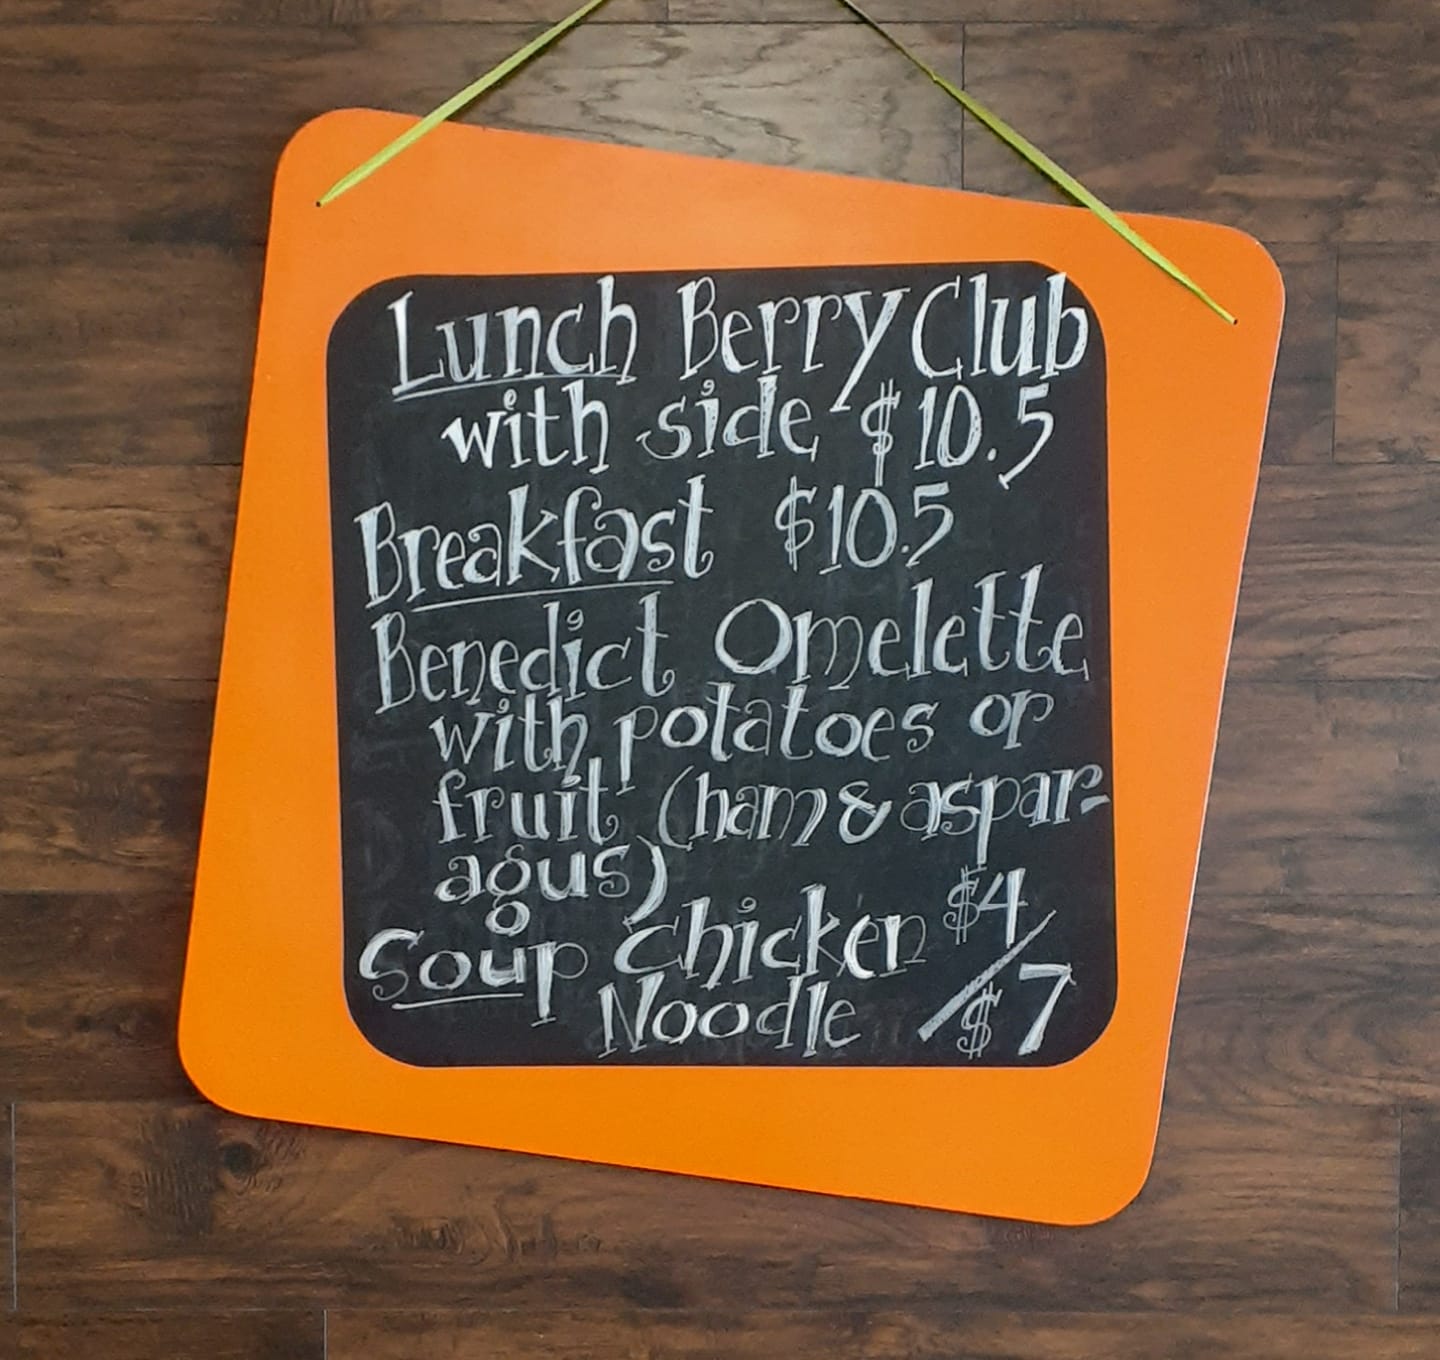 Lunch Berry Club
with side $10.5
Breakfast $10.5
Benedict Omelette
with potatoes or
fruit (ham & aspar-
agus)
Soup Chicken $4
Noodle / $7